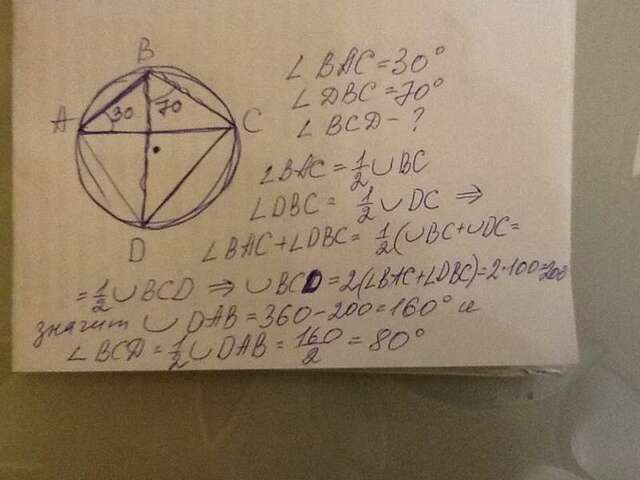 B
A 30 70 C
D
∠ BAC = 30°
∠ DBC = 70°
∠ BCD - ?
∠BAC = 1/2 ∪ BC
∠DBC = 1/2 ∪ DC ⇒
∠BAC + ∠DBC = 1/2 (∪BC + ∪DC =
= 1/2 ∪ BCD ⇒ ∪ BCD = 2(∠BAC + ∠DBC) = 2·100 = 200
значит ∪ DAB = 360 - 200 = 160° и
∠ BCD = 1/2 ∪ DAB = 160/2 = 80°